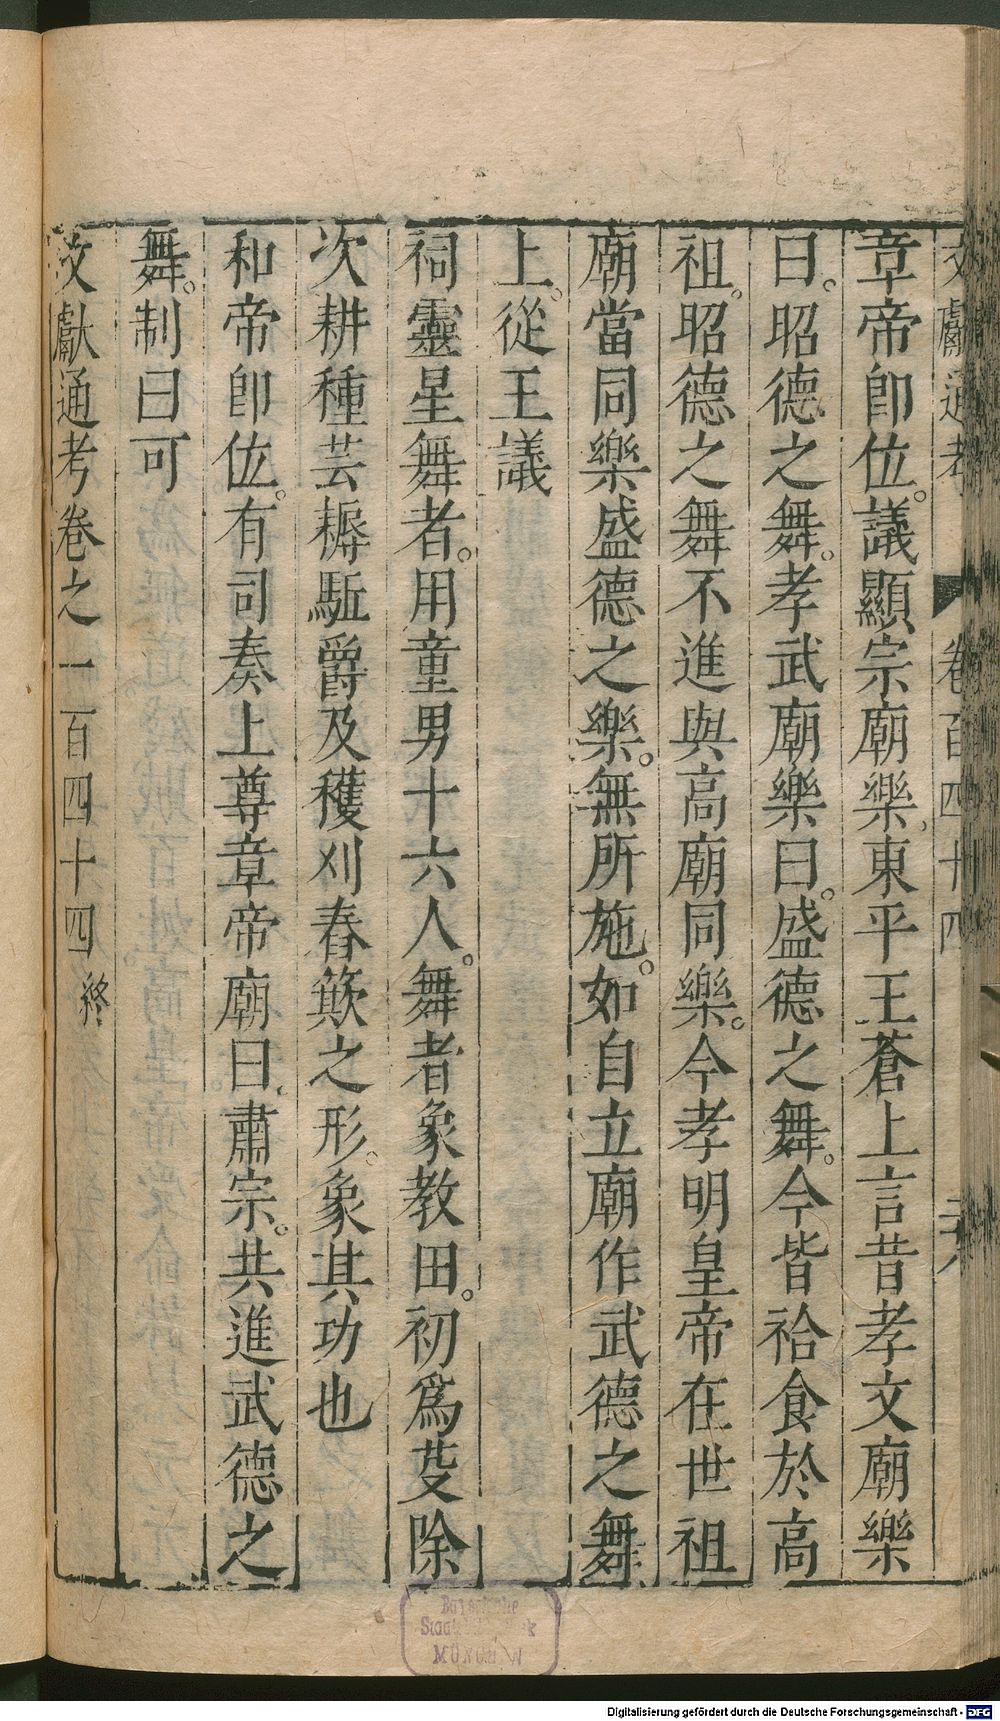 文獻通考 卷百四十四
章帝即位。議顯宗廟樂、東平王蒼上言昔孝文廟樂
曰。昭德之舞。孝武廟樂曰。盛德之舞。今皆祫食於高
祖。昭德之舞不進與高廟同樂。今孝明皇帝在世祖
廟當同樂盛德之樂。無所施。如自立廟作武德之舞
上。從王議
祠靈星舞者。用童男十六人。舞者象教田。初爲芟除
次耕種芸耨駈爵及穫刈舂簸之形。象其功也
和帝即位。有司奏上尊章帝廟曰、肅宗。共進武德之
舞。制曰可
文獻通考卷之一百四十四 終
Bayerische
Staatsbibliothek
MÜNCHEN
Digitalisierung gefördert durch die Deutsche Forschungsgemeinschaft - DFG